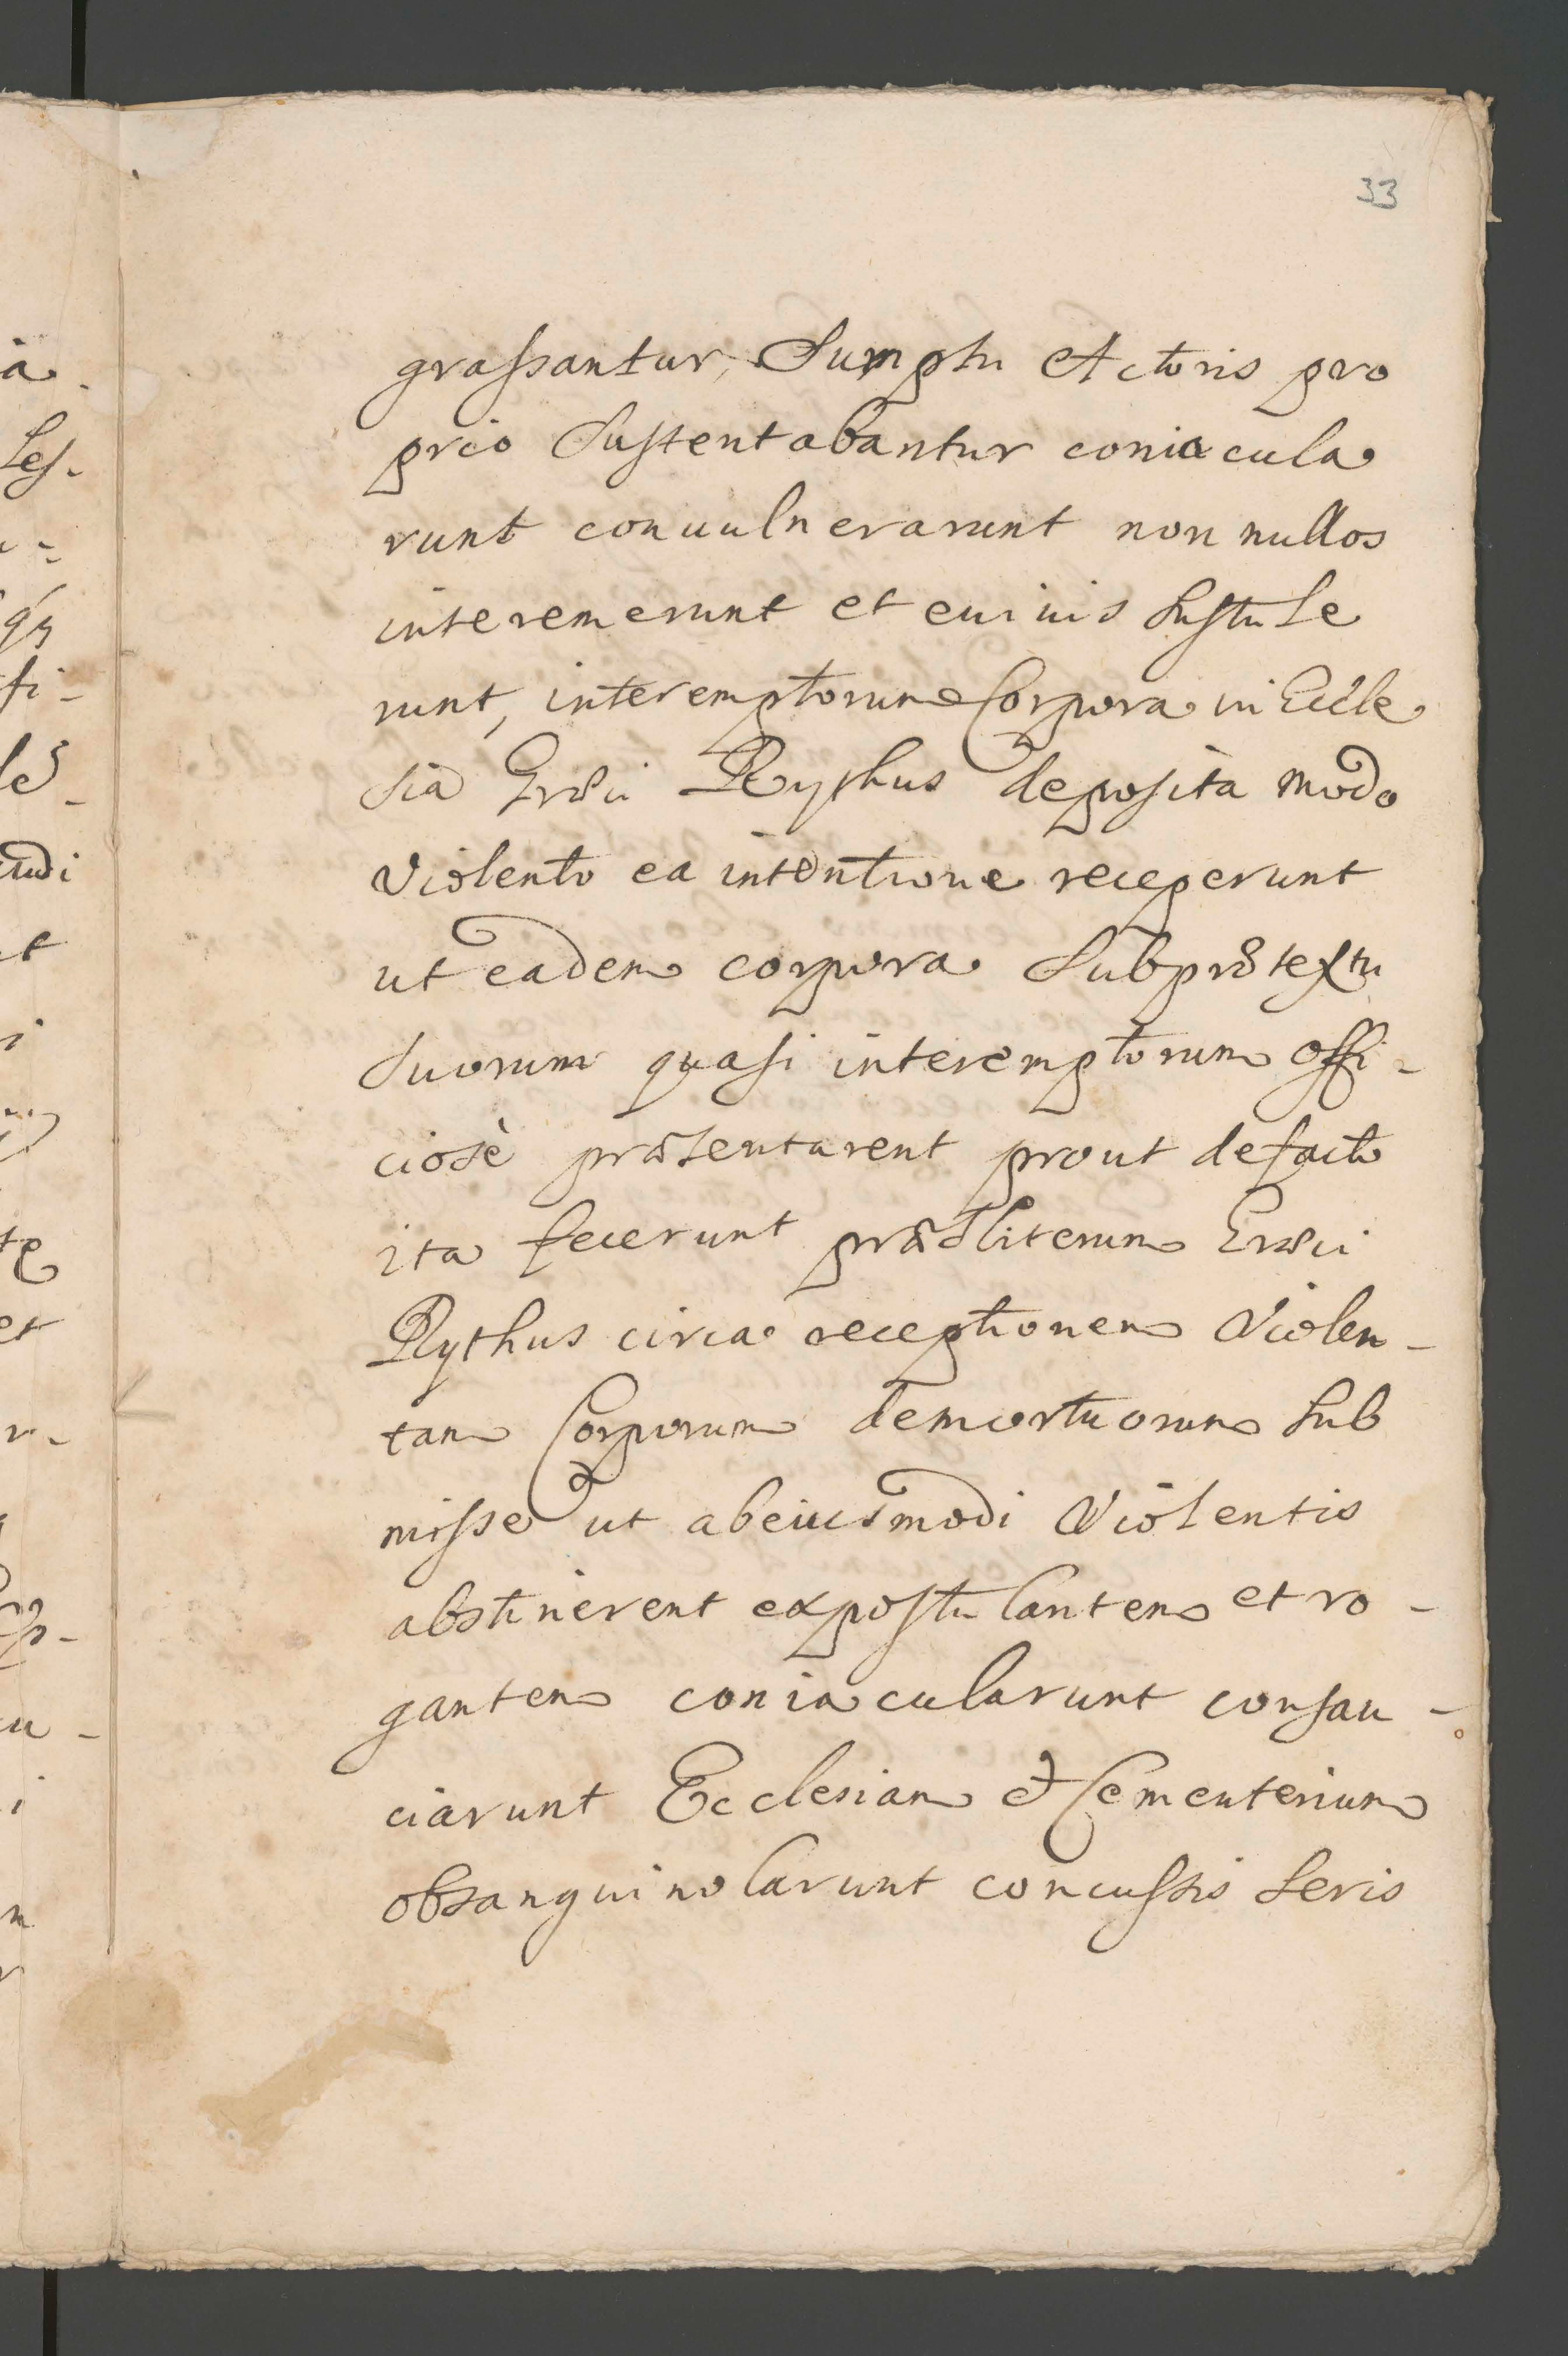 33
graſsantur, Sumptu Actoris pro
prio Suſtentabantur coniacula
runt conuulnerarunt non nullos
interemerunt et euiuis Suſtule
runt, interemptorum Corpora in Eccle
sia Græci Rythus deposita modo
Violento ea intentione receperunt
ut eadem corpora Subprætextu
Suorum quaſi interemptorum offi-
ciosè præsentarent prout defacto
ita fecerunt præsbiterum Græci
Rythus circa receptionem Violen-
tam Corporum demortuorum Sub
miſse ut abeiusmodi Violentis
abstinerent expoſtulantem et ro-
gantem coniacularunt conſau-
ciarunt Ecclesiam et Cementerium
obsanguinolarunt concuſsis Seris